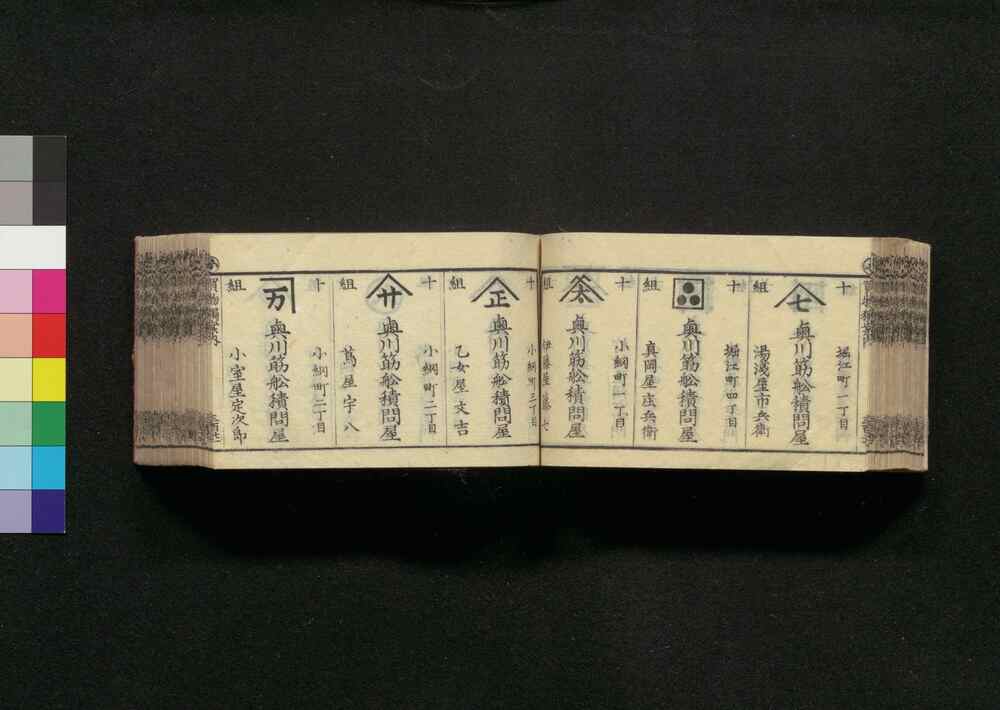 十組
七
堀江町一丁目
奥川筋舩積問屋
湯淺屋市兵衛
十組
堀江町四丁目
奥川筋舩積問屋
真岡屋庄兵衛
十組
小網町一丁目
奥川筋舩積問屋
伊藤屋藤七
十組
正
小網町三丁目
奥川筋舩積問屋
乙女屋文吉
十組
廿
小網町二丁目
奥川筋舩積問屋
蔦屋宇八
十組
万
小網町二丁目
奥川筋舩積問屋
小室屋定次郎